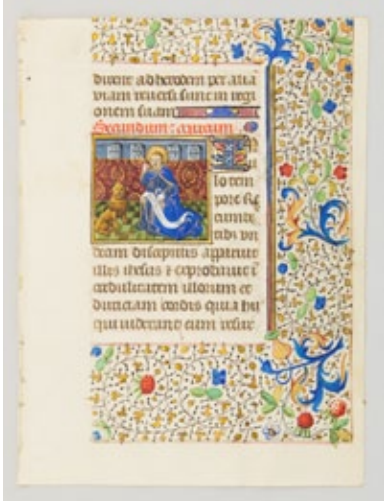 dirent ad herodem per aliā
viam reuersi sunt in regi
onem suam
Secundum
lo tem
pore Re
cumbē
tibz vn
decim discipulis apparuit
illis ihesus & exprobrauit ī
credulitatem illorum et
duriciam cordis quia hii
qui uiderant eum resur